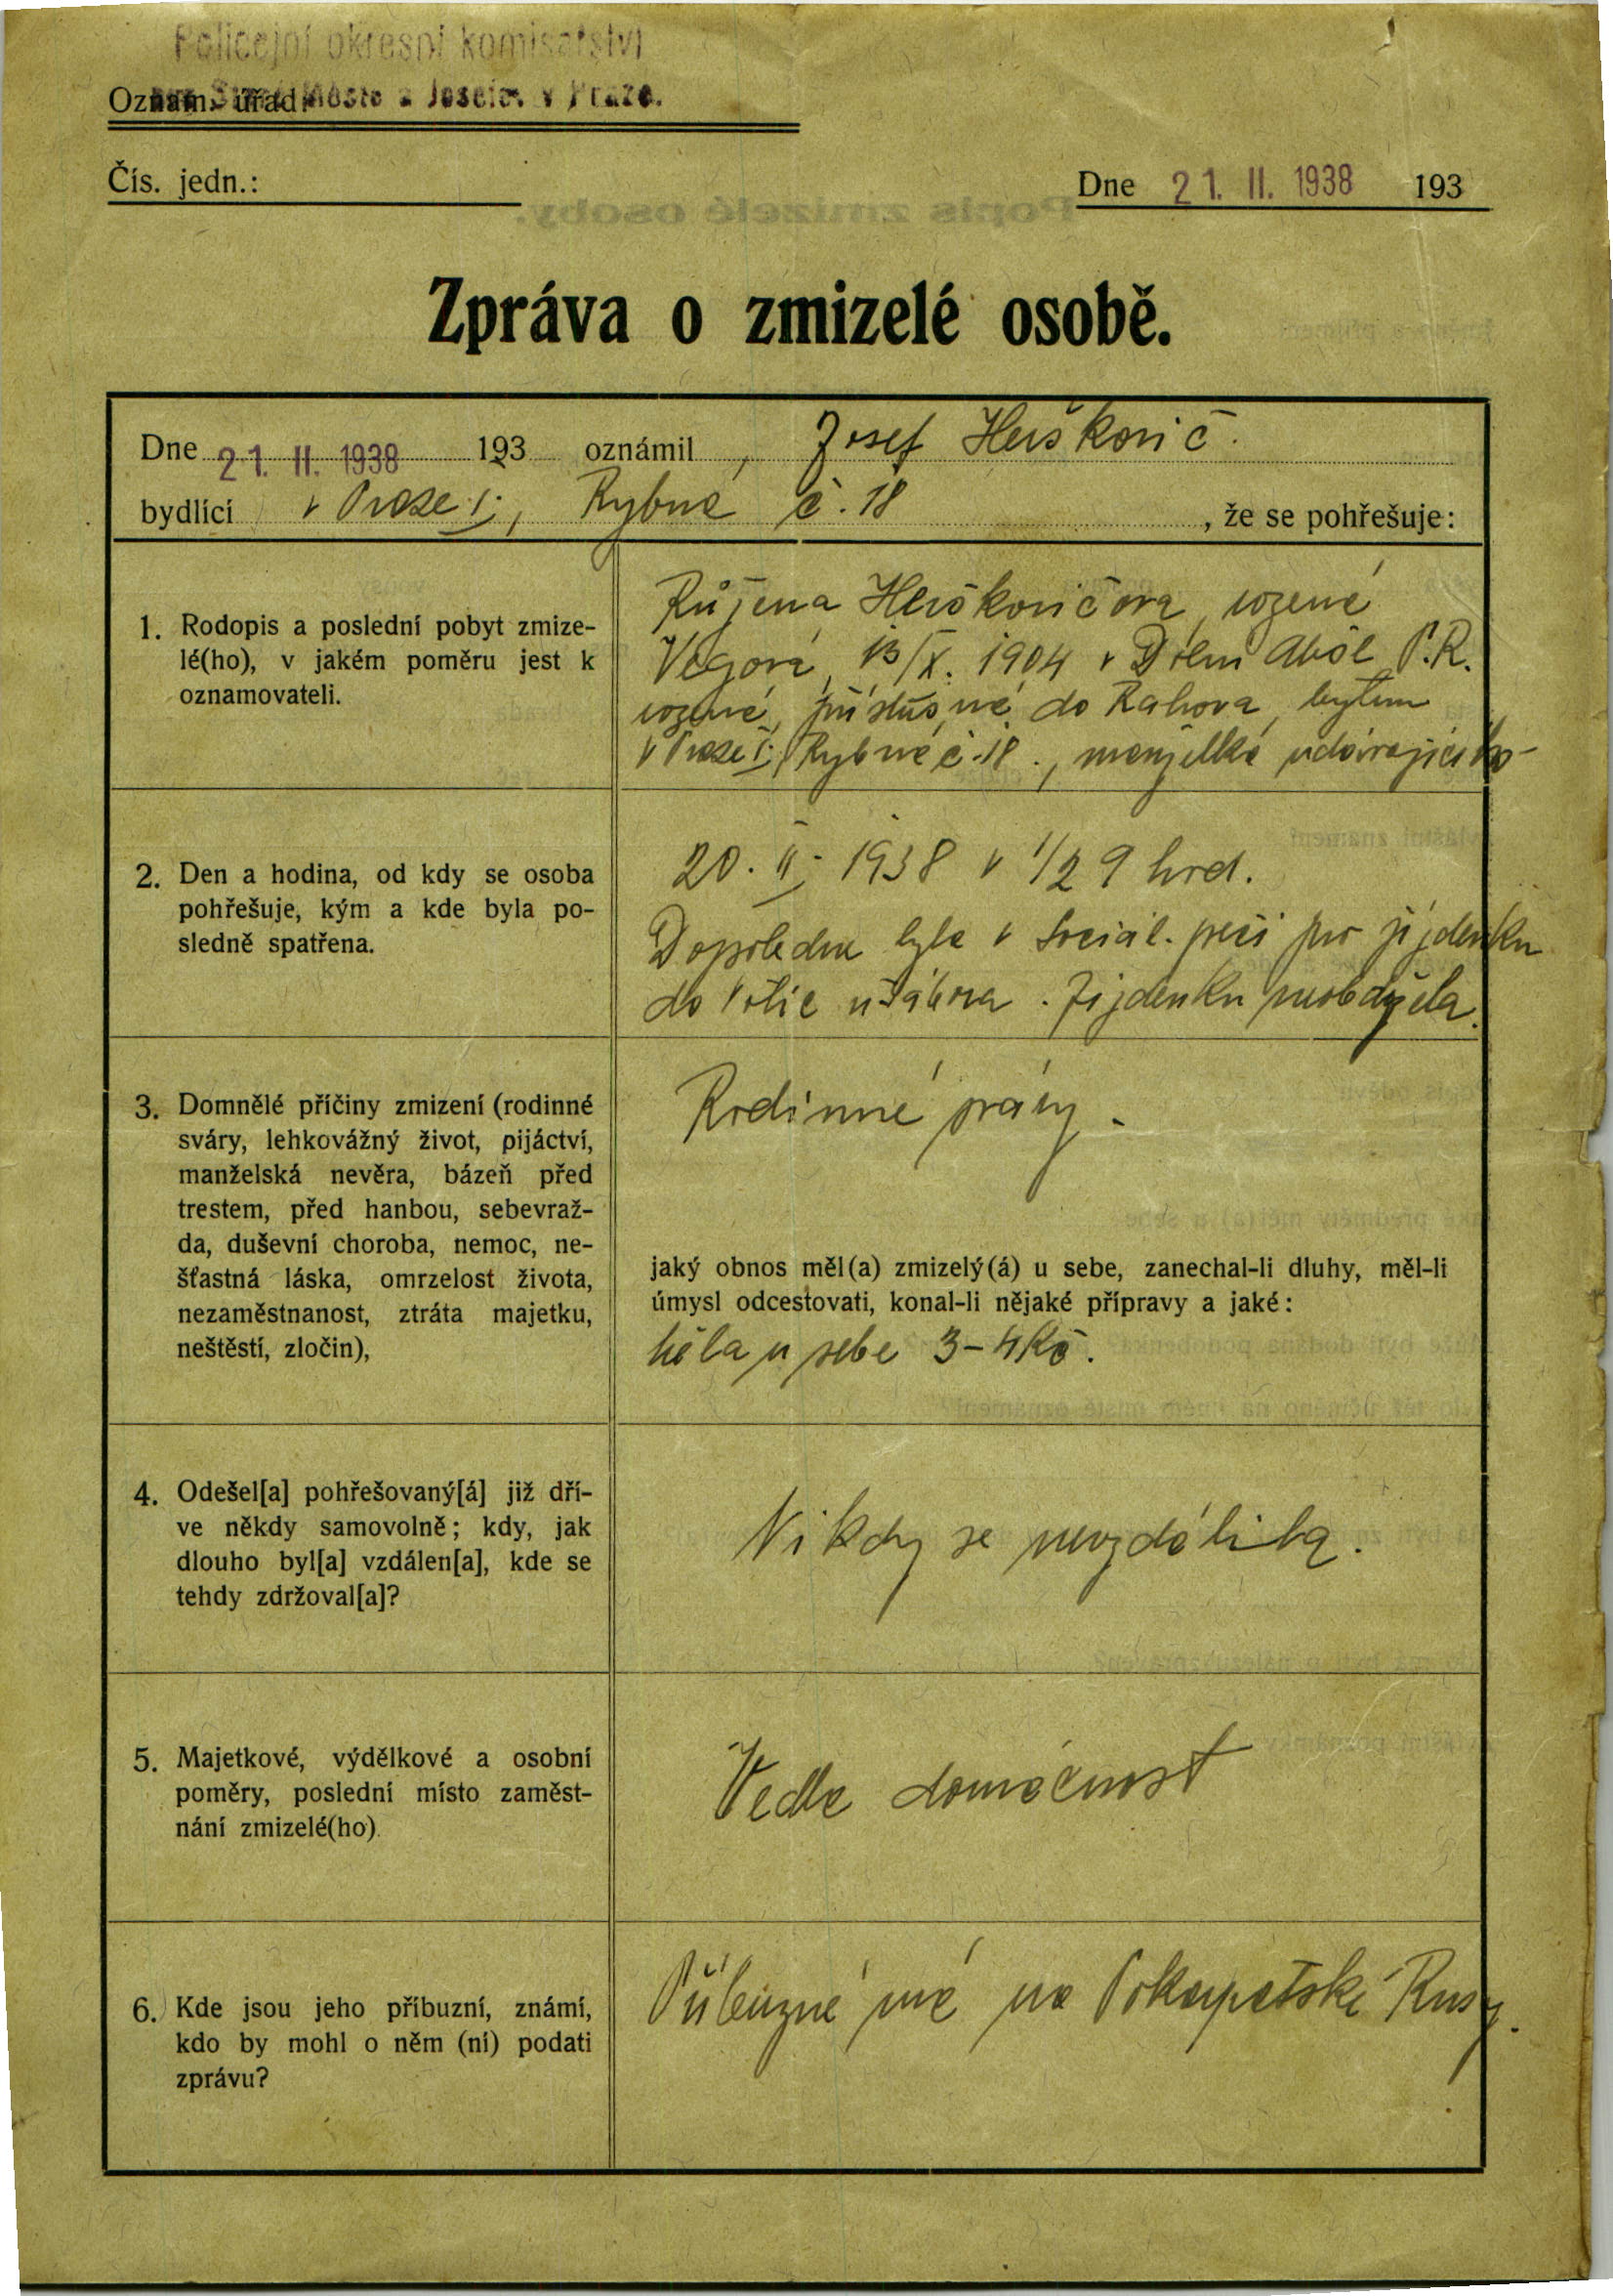 Policejní okresní komisařství
Oznam. úřad: Staré Město a Josefov v Praze.
Čís. jedn.:
Dne 21. II. 1938 193
Zpráva o zmizelé osobě.
Dne 21. II. 1938 193 oznámil Josef Herškovič.
bydlící v Praze I., Rybná č. 18 , že se pohřešuje:
1. Rodopis a poslední pobyt zmize-
lé(ho), v jakém poměru jest k
oznamovateli.
Růžena Herškovičová, rozená
Végová, 13/X. 1904 v P.R.
rozená, příslušná do Rahova, bytem
v Praze I., Rybná č. 18., manželka udávajícího
2. Den a hodina, od kdy se osoba
pohřešuje, kým a kde byla po-
sledně spatřena.
20. II. 1938 v 1/2 9 hod.
Dopoledne byla v sociál. péči pro jízdenku
do Votic u Tábora. Jízdenku neobdržela.
3. Domnělé příčiny zmizení (rodinné
sváry, lehkovážný život, pijáctví,
manželská nevěra, bázeň před
trestem, před hanbou, sebevraž-
da, duševní choroba, nemoc, ne-
šťastná láska, omrzelost života,
nezaměstnanost, ztráta majetku,
neštěstí, zločin),
Rodinné sváry.
jaký obnos měl(a) zmizelý(á) u sebe, zanechal-li dluhy, měl-li
úmysl odcestovati, konal-li nějaké přípravy a jaké:
Měla u sebe 3-4 Kč.
4. Odešel[a] pohřešovaný[á] již dří-
ve někdy samovolně; kdy, jak
dlouho byl[a] vzdálen[a], kde se
tehdy zdržoval[a]?
Nikdy se nevzdálila.
5. Majetkové, výdělkové a osobní
poměry, poslední místo zaměst-
nání zmizelé(ho).
Vedla domácnost
6. Kde jsou jeho příbuzní, známí,
kdo by mohl o něm (ní) podati
zprávu?
Příbuzné má na Podkarpatské Rusy.